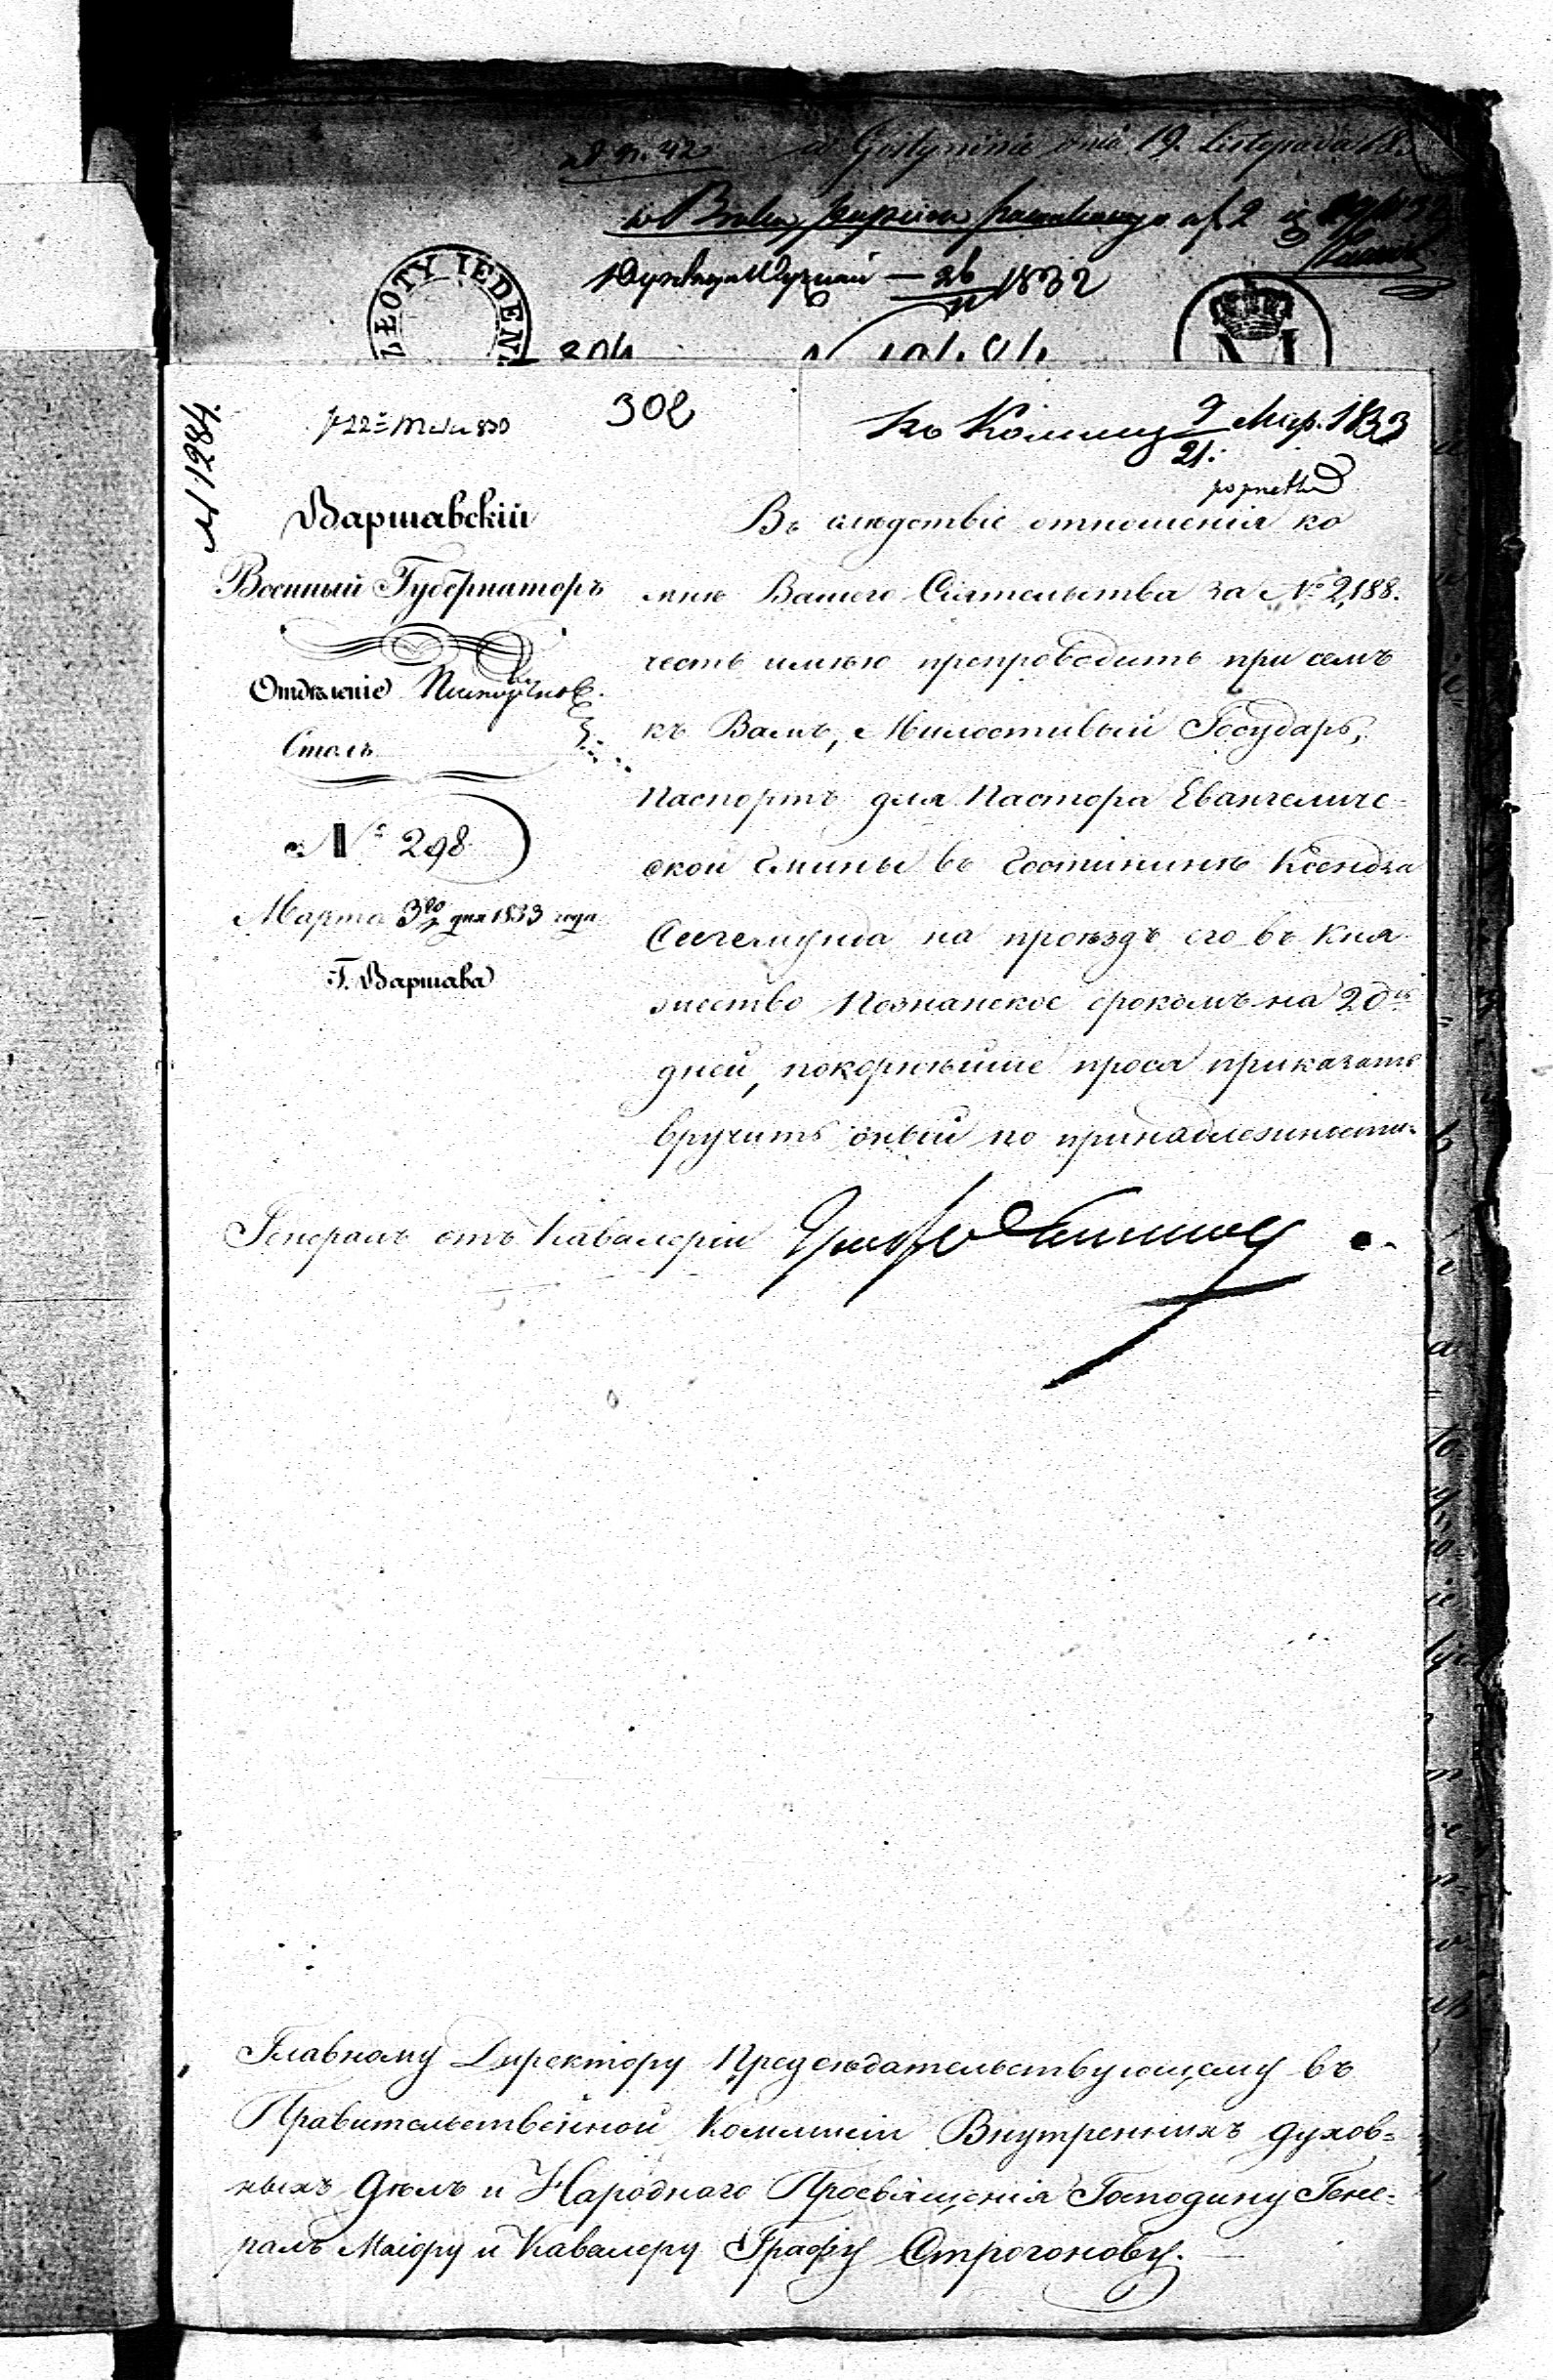 ad n. 42 w Gostyninie dnia 19. Listopada 18
w papieru 2
26 1832
ZŁOTY IEDEN
№ 1284.
302
Къ 9/21 Мар. 1833
Варшавскій
Военный Губернаторъ
Отдѣленіе
Столъ
№ 298
Марта 3го дня 1833 года
Г. Варшава
Въ слѣдствіе отношенія ко
мнѣ Вашего Сіятельства за № 2,188.
честь имѣю препроводить при семъ
къ Вамъ, Милостивый Государь,
Паспортъ для Пастора Евангеличе=
ской Гмины въ Гостининѣ Ксендза
на проѣздъ его въ Кня
жество Познанское срокомъ на 20ть
дней, покорнѣйше прося приказать
вручить оный по принадлежности.
Генералъ отъ Кавалеріи Графъ
Главному Директору Предсѣдательствующему въ
Правительственной Коммисіи Внутреннихъ Духов=
ныхъ Дѣлъ и Народнаго Просвѣщенія Господину Гене=
ралъ Маіору и Кавалеру Графу Строгонову.